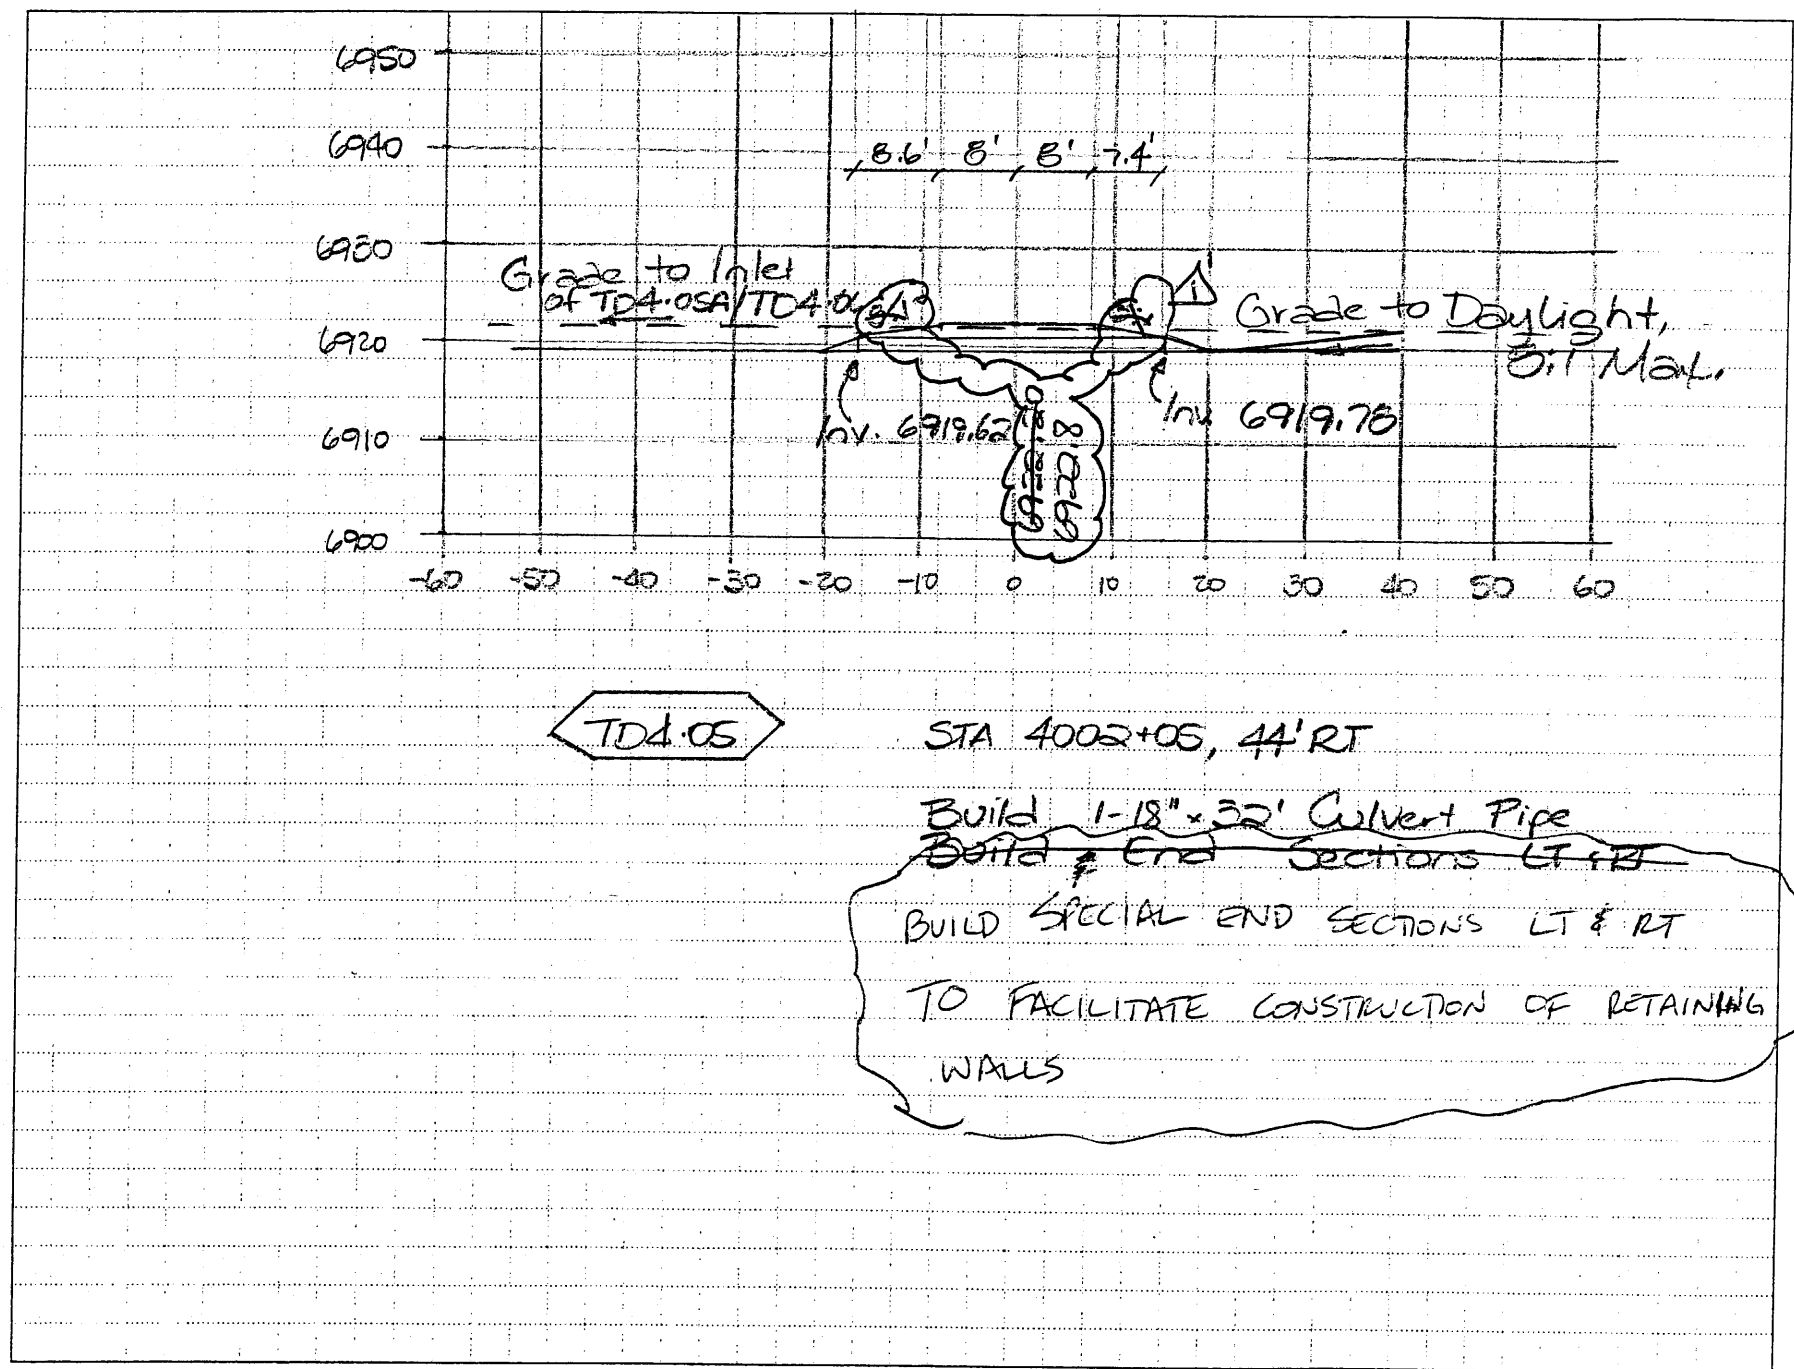 6950
6940
8.6' 8' 8' 7.4'
6930
Grade to Inlet
of TD4.05A/TD4.06
1
Grade to Daylight,
5:1 Max.
6920
Inv. 6919.62
Inv. 6919.78
6910
6922.8
6900
-60 -50 -40 -30 -20 -10 0 10 20 30 40 50 60
TD4.05
STA 4002+05, 44' RT
Build 1-18"x32' Culvert Pipe
Build End Sections LT & RT
BUILD SPECIAL END SECTIONS LT & RT
TO FACILITATE CONSTRUCTION OF RETAINING
WALLS